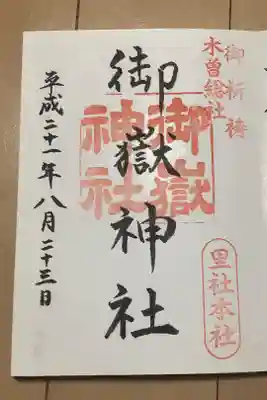 御祈祷
木曽総社
里社本社
御嶽神社
御嶽神社
平成二十一年八月二十三日